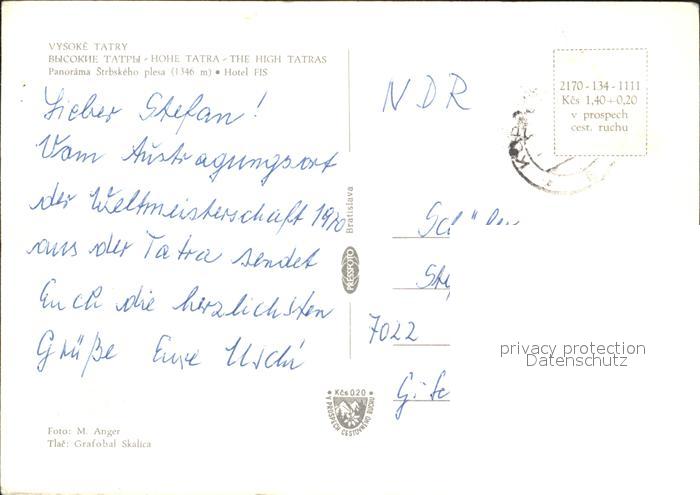 VYSOKÉ TATRY
ВЫСОКИЕ ТАТРЫ - HOHE TATRA - THE HIGH TATRAS
Panoráma Štrbského plesa (1346 m) • Hotel FIS
Lieber Stefan!
Vom Austragungsort
der Weltmeisterschaft 1970
aus der Tatra sendet
Euch die herzlichsten
Grüße Eure Uschi
Foto: M. Anger
Tlač: Grafobal Skalica
Bratislava
PRESSFOTO
• Kčs 0.20 •
V PROSPECH CESTOVNÉHO RUCHU
NDR
2170 - 134 - 1111
Kčs 1,40 + 0,20
v prospech
cest. ruchu
7022
privacy protection
Datenschutz